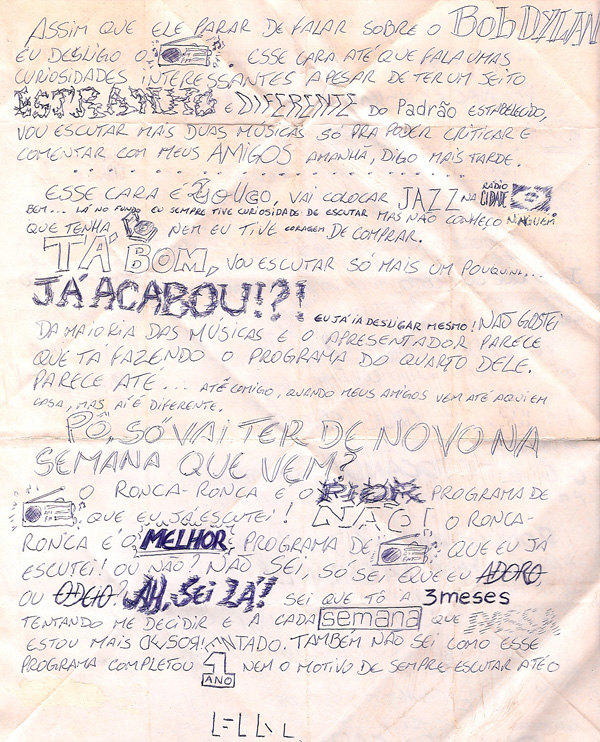 ASSIM QUE ELE PARAR DE FALAR SOBRE O Bob DYLAN
EU DESLIGO O . ESSE CARA ATÉ QUE FALA UMAS
CURIOSIDADES INTERESSANTES APESAR DE TER UM JEITO
ESTRANHO E DIFERENTE DO Padrão ESTABELECIDO,
VOU ESCUTAR MAIS DUAS MÚSICAS SÓ PRA PODER CRITICAR E
COMENTAR COM MEUS AMIGOS AMANHÃ, DIGO MAIS TARDE.
ESSE CARA É , VAI COLOCAR JAZZ NA RÁDIO CIDADE
BEM... LÁ NO FUNDO EU SEMPRE TIVE CURIOSIDADE DE ESCUTAR MAS NÃO CONHEÇO NINGUÉM
QUE TENHA NEM EU TIVE CORAGEM DE COMPRAR.
TÁ BOM, VOU ESCUTAR SÓ MAIS UM POUQUINH...
JÁ ACABOU!?! EU JÁ IA DESLIGAR MESMO! NÃO GOSTEI
DA MAIORIA DAS MÚSICAS E O APRESENTADOR PARECE
QUE TÁ FAZENDO O PROGRAMA DO QUARTO DELE.
PARECE ATÉ... ATÉ COMIGO, QUANDO MEUS AMIGOS VEM ATÉ AQUI EM
CASA, MAS AÍ É DIFERENTE.
PÔ, SÓ VAI TER DE NOVO NA
SEMANA QUE VEM?
O RONCA-RONCA É O PIOR PROGRAMA DE
QUE EU JÁ ESCUTEI! NÃO! O RONCA-
RONCA É O MELHOR PROGRAMA DE QUE EU JÁ
ESCUTEI! OU NÃO? NÃO SEI, SÓ SEI QUE EU ADORO
OU ODEIO? AH, SEI LÁ! SEI QUE TÔ A 3 meses
TENTANDO ME DECIDIR E A CADA semana QUE
ESTOU MAIS DESORIENTADO. TAMBÉM NÃO SEI COMO ESSE
PROGRAMA COMPLETOU 1 ANO NEM O MOTIVO DE SEMPRE ESCUTAR ATÉ O